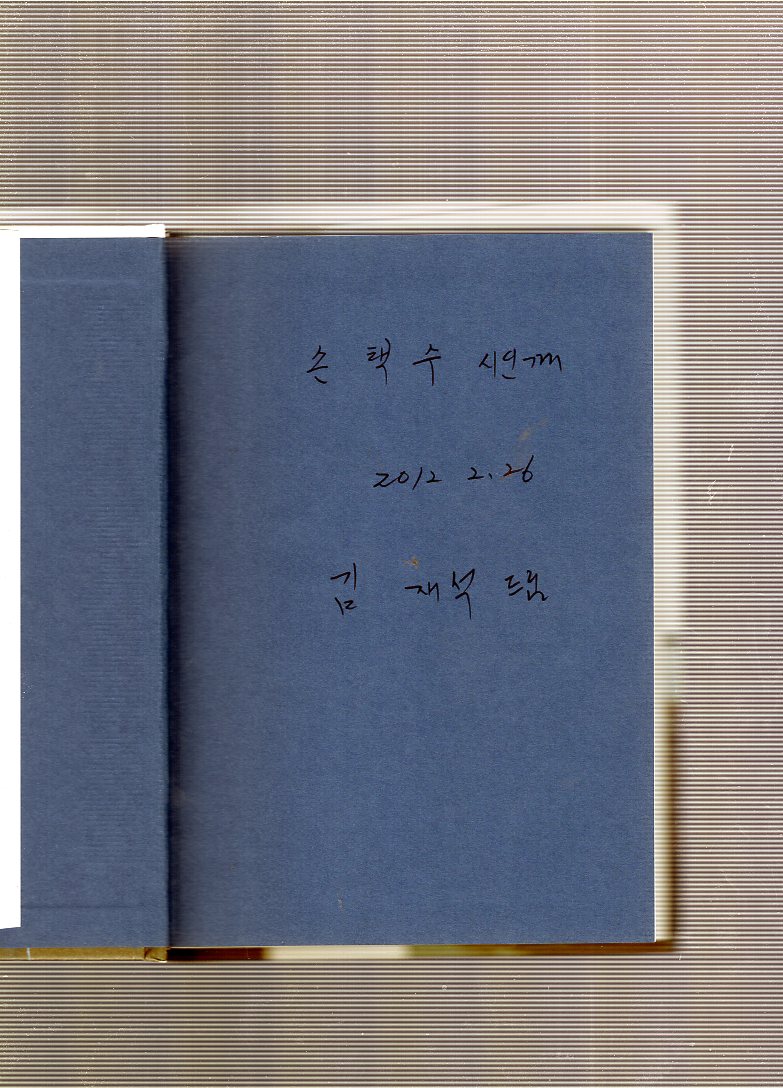 손 택 수 시인께
2012 2. 26
김 재석 드림